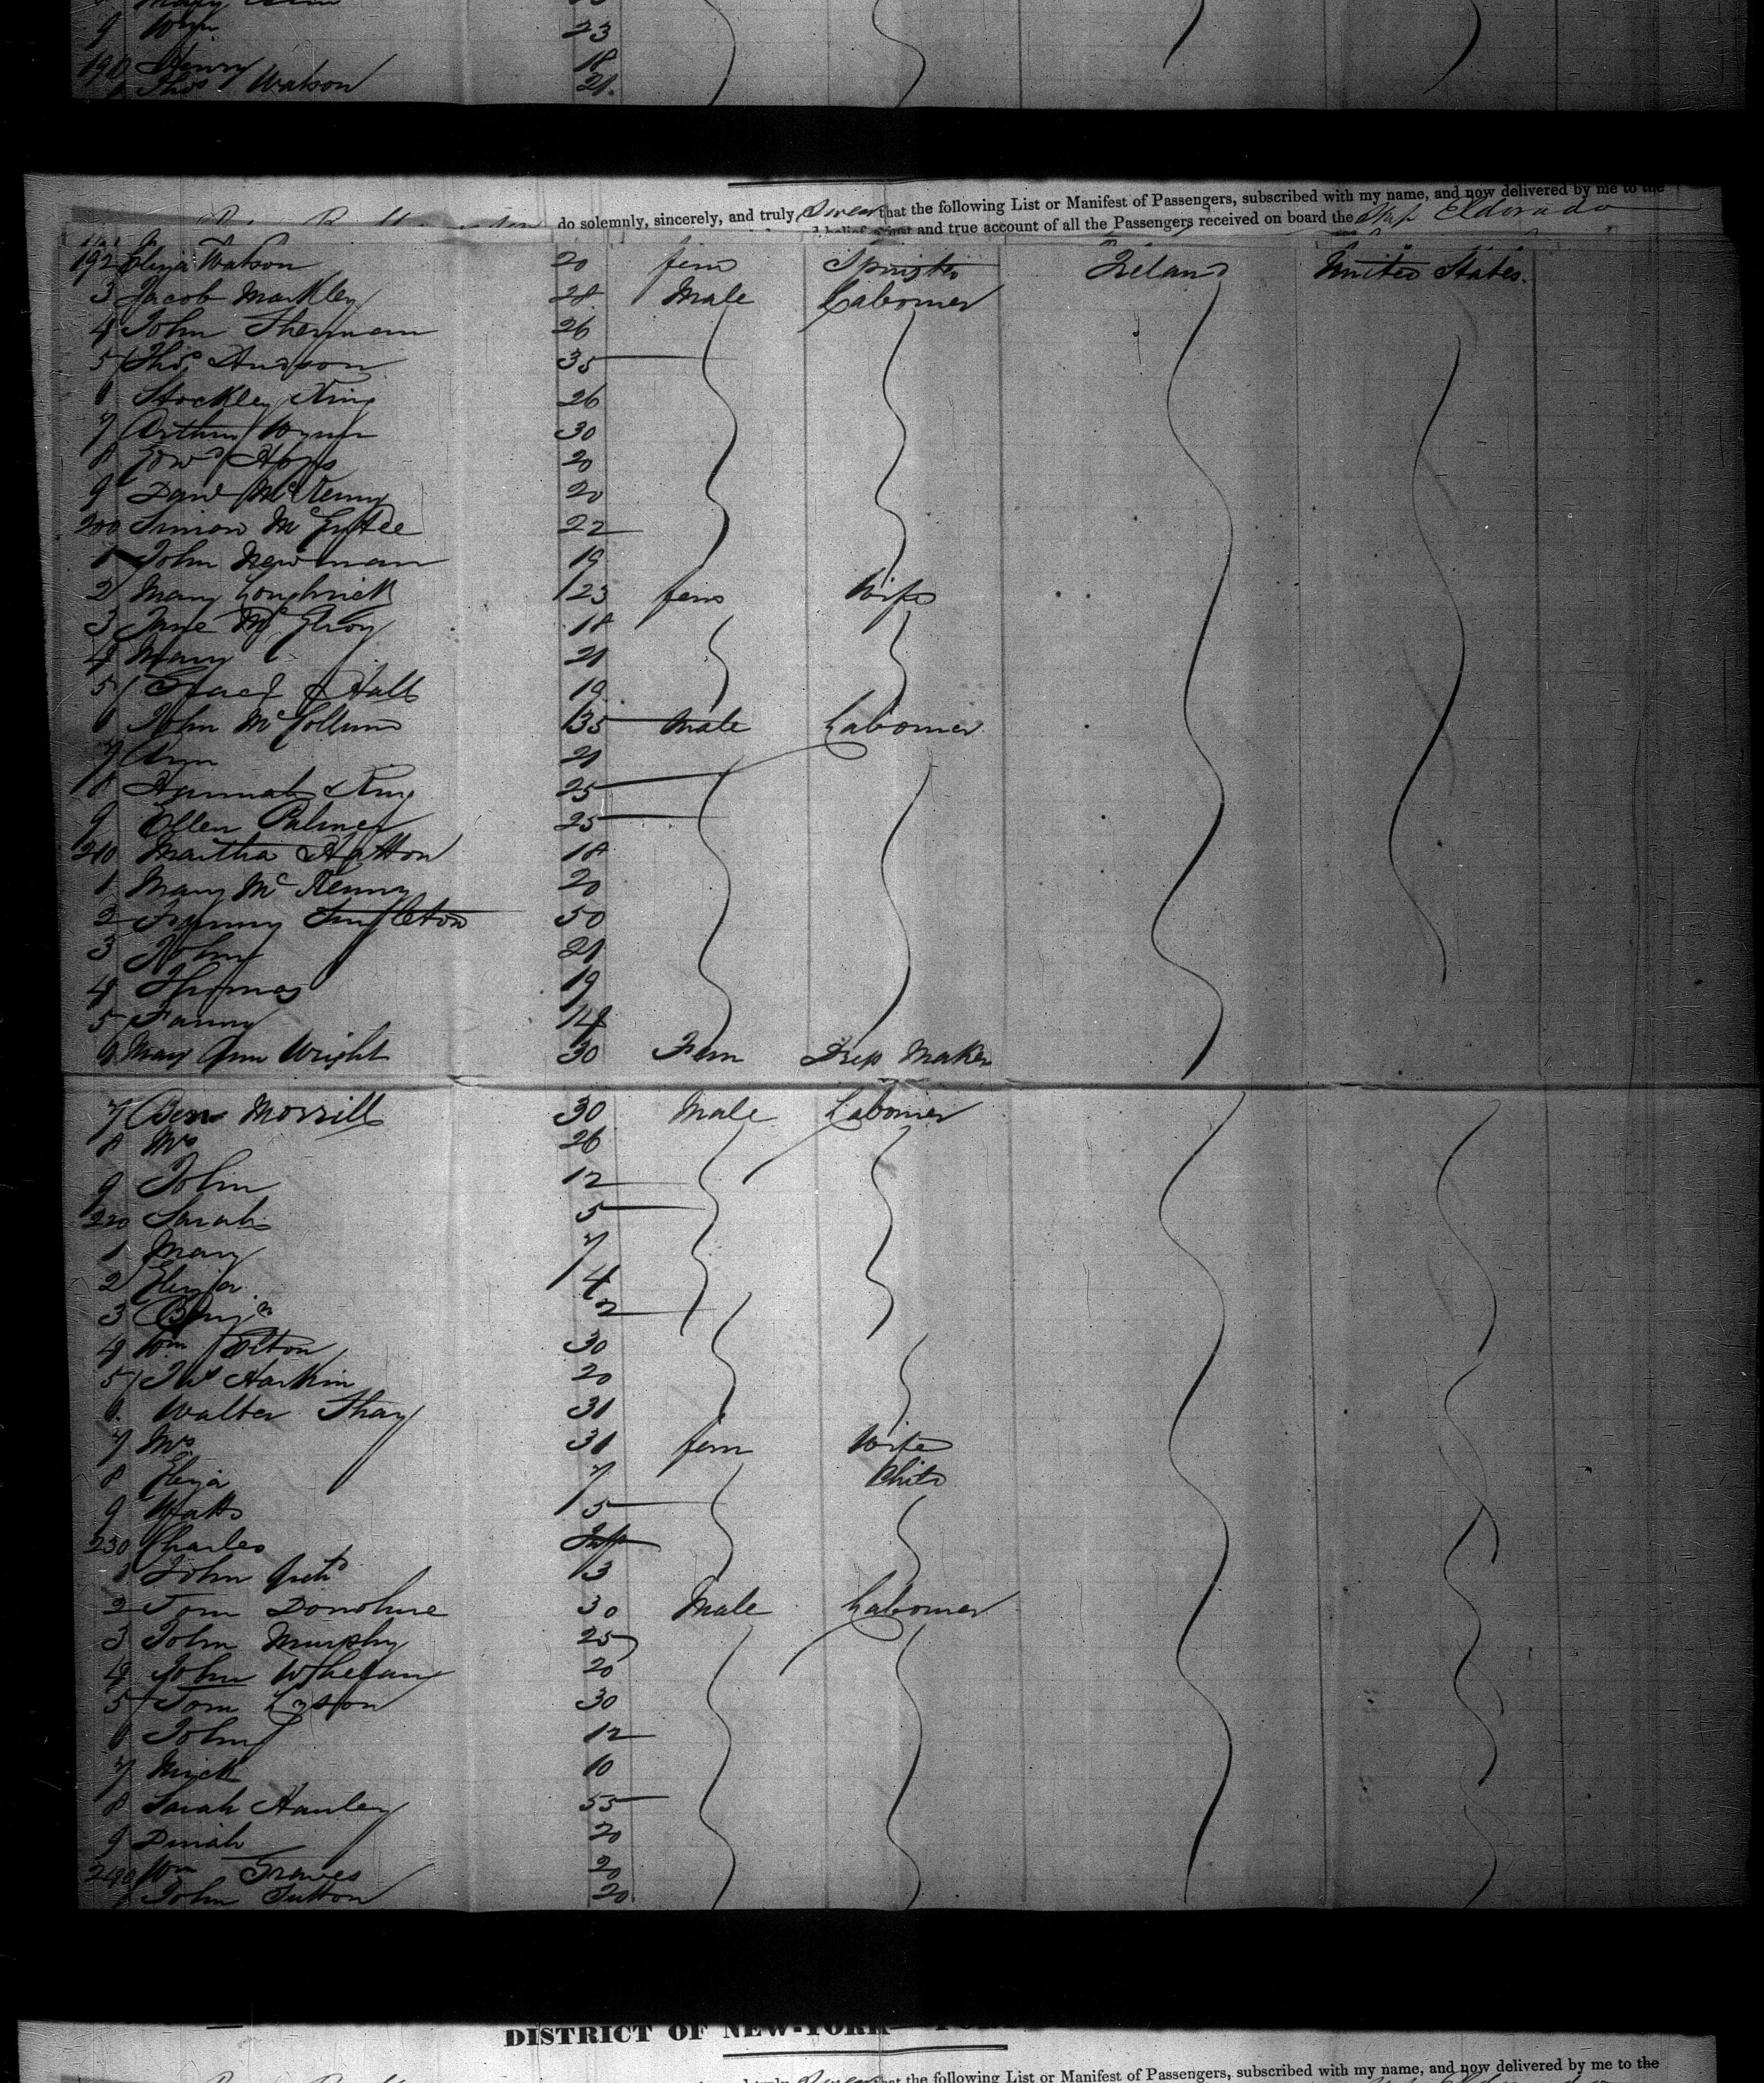 9 Wm 23
190 Henry 18
1 Thos Watson 21
do solemnly, sincerely, and truly Swear that the following List or Manifest of Passengers, subscribed with my name, and now delivered by me to the
and true account of all the Passengers received on board the Ship Eldorado
192 Eliza Watson 20 fem Spinster Ireland United States.
3 Jacob Markley 28 Male Labourer
4 John Sherman 26
5 Thos Hudson 35
6 Stockley King 26
7 Arthur Wynn 30
8 Edwd Hops 20
9 Danl McKenny 20
200 Simon McEntee 22
1 John Newman 19
2 Mary 23 fem Wife
3 Jane McElroy 18
4 Mary 21
5 Hall 19
6 John McCollum 35 Male Labourer
7 Ann 21
8 Hannah King 25
9 Ellen Palmer 25
210 Martha Hatton 18
1 Mary McKenny 20
2 Fanny Singleton 50
3 John 21
4 Thomas 19
5 Fanny 14
6 Mary Ann Wright 30 Fem Dress Maker
7 Ben Morrill 30 Male Labourer
8 Mrs 26
9 John 12
220 Sarah 5
1 Mary 7
2 Eliza 4
3 Benjn 2
4 Wm 30
5 Jas Harkin 20
6 Walter Shay 31
7 Mrs 31 fem Wife
8 Eliza 7 Child
9 5
230 Charles Inf
1 John 13
2 Tom Donohue 30 Male Labourer
3 John Murphy 25
4 John Whelan 20
5 Tom 30
6 John 12
7 Mick 10
8 Sarah Hanley 55
9 Dinah 20
240 Wm Graves 20
1 John Sutton 20
DISTRICT OF NEW-YORK
the following List or Manifest of Passengers, subscribed with my name, and now delivered by me to the